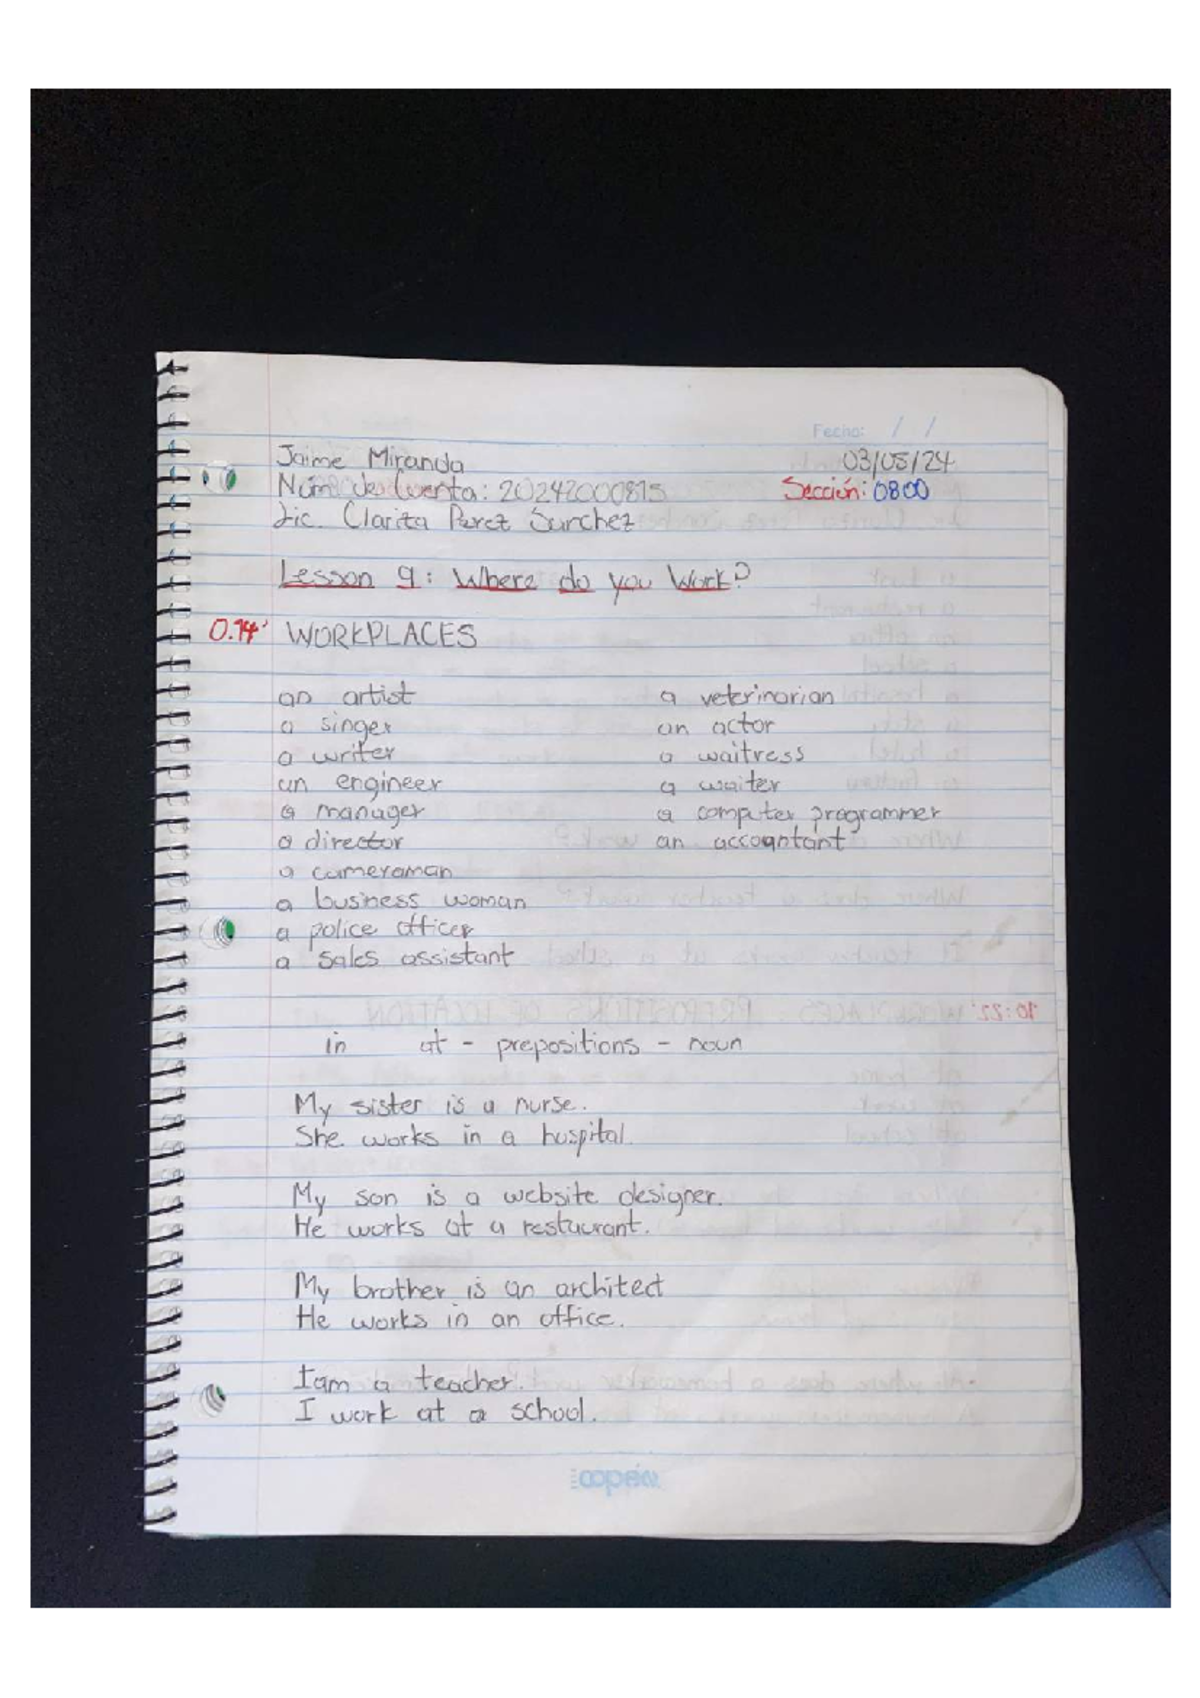 Fecha: / /
Jaime Miranda 03/05/24
Núm de Cuenta: 20242000815 Sección: 0800
Lic. Clarita Perez Sanchez
Lesson 9: Where do you Work?
0.14' WORKPLACES
an artist a veterinarian
a singer an actor
a writer a waitress
an engineer a waiter
a manager a computer programmer
a director an accountant
a cameraman
a business woman
a police officer
a sales assistant
in at - prepositions - noun
My sister is a nurse.
She works in a hospital.
My son is a website designer.
He works at a restaurant.
My brother is an architect
He works in an office.
I am a teacher.
I work at a school.
copán